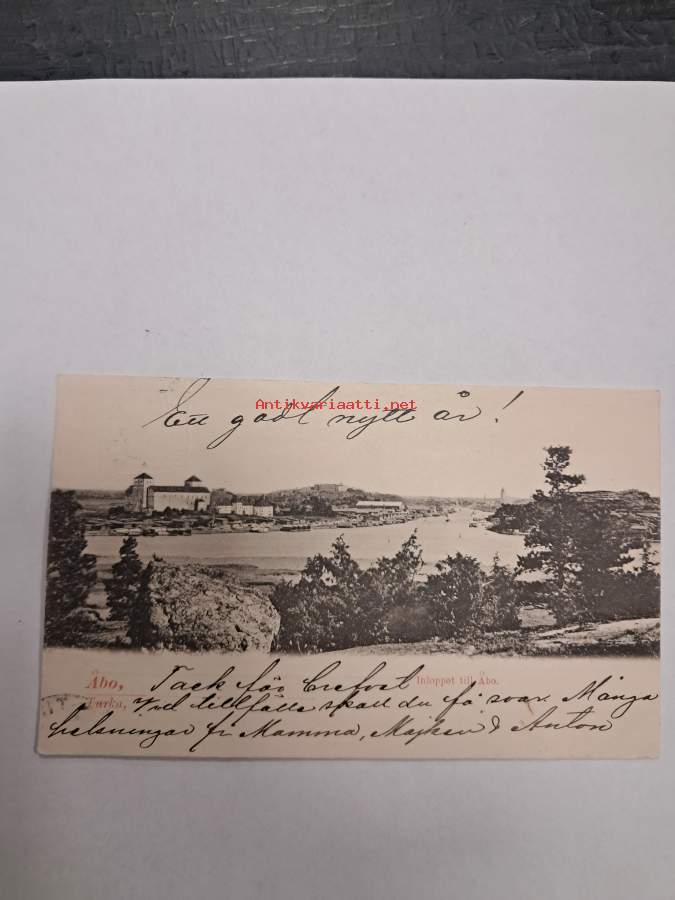 Ett godt nytt år!
Antikvariaatti.net
Åbo,
Turku,
Inloppet till Åbo.
Tack för brefvet
Vid tillfälle skall du få svar Många
helsningar fr Mamma, Majken & Anton